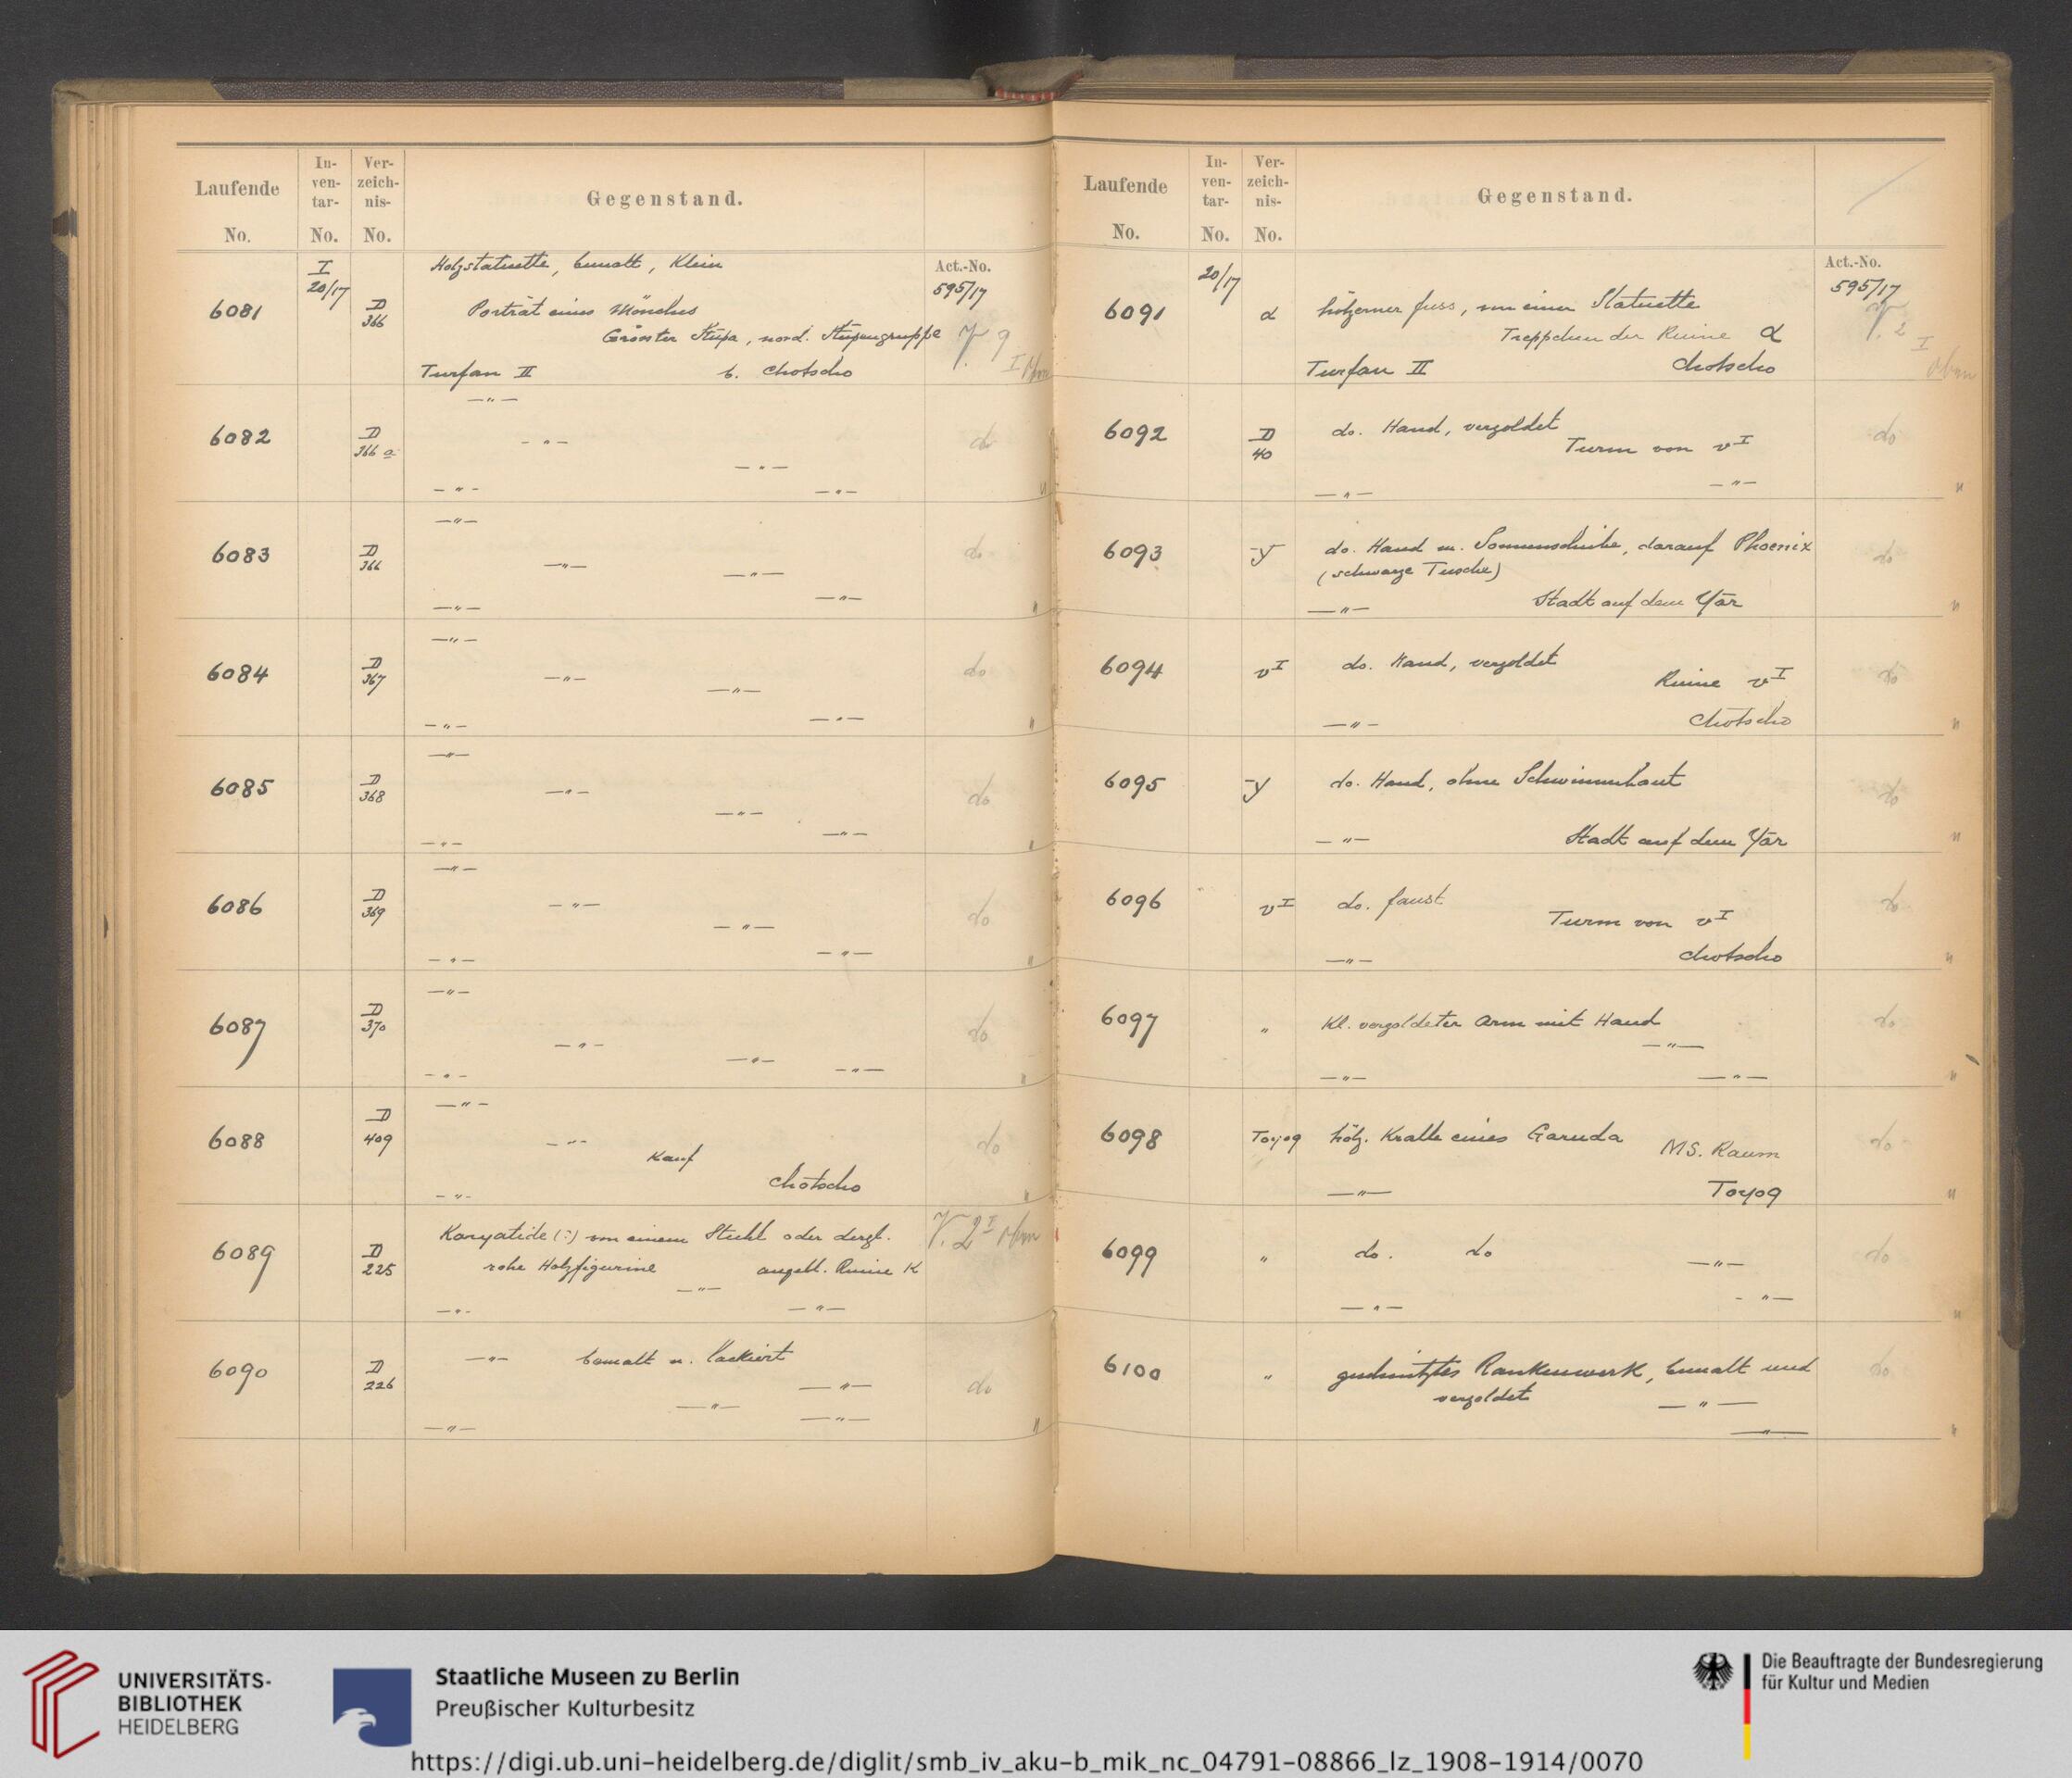 Laufende No.
In-ven-tar-No.
Ver-zeich-nis-No.
Gegenstand.
I 20/17
Holzstatuette, bemalt, Klein
Act.-No. 595/17
6081
D 366
Porträt eines Mönches
Grösster Stūpa, nörd. Stūpengruppe
V. 9 I
Turfan II b. Chotscho
—"—
6082
D 366 a
—"—
do
—"—
—"— —"— "
—"—
6083
D 366
—"—
do
—"—
—"—
—"— "
—"—
6084
D 367
—"—
do
—"—
—"—
—"— "
—"—
6085
D 368
—"—
do
—"—
—"—
—"— "
—"—
6086
D 369
—"—
do
—"—
—"— —"— "
—"—
6087
D 370
—"—
do
—"—
—"—
—"— "
—"—
6088
D 409
—"—
do
Kauf
Chotscho
—"— "
Karyatide (?) von einem Stuhl oder dergl.
V. 2 I oben
6089
D 225
rohe Holzfigurine angebl. Ruine K
—"—
—"— —"—
6090
D 226
—"— bemalt u. lackiert
—"—
do
—"—
—"—
—"— "
Laufende No.
In-ven-tar-No.
Ver-zeich-nis-No.
Gegenstand.
20/17
Act.-No. 595/17
6091
α
hölzerner Fuss, von einer Statuette
V. 2 I oben
Treppchen der Ruine α
Turfan II Chotscho
6092
D 40
do. Hand, vergoldet
do
Turm von v I
—"— —"— "
6093
y
do. Hand m. Sonnenscheibe, darauf Phoenix
do
(schwarze Tusche)
—"— Stadt auf dem Yār "
6094
v I
do. Hand, vergoldet
do
Ruine v I
—"— Chotscho "
6095
y
do. Hand, ohne Schwimmhaut
do
—"— Stadt auf dem Yār "
6096
v I
do. Faust
do
Turm von v I
—"— Chotscho "
6097
"
Kl. vergoldeter Arm mit Hand
do
—"—
—"— —"— "
6098
Toyoq
hölz. Kralle eines Garuda
do
MS. Raum
—"— Toyoq "
6099
"
do. do
do
—"—
—"— —"— "
6100
"
geschnitztes Rankenwerk, bemalt und
do
vergoldet —"—
—"— "
UNIVERSITÄTS-
BIBLIOTHEK
HEIDELBERG
Staatliche Museen zu Berlin
Preußischer Kulturbesitz
Die Beauftragte der Bundesregierung
für Kultur und Medien
https://digi.ub.uni-heidelberg.de/diglit/smb_iv_aku-b_mik_nc_04791-08866_lz_1908-1914/0070